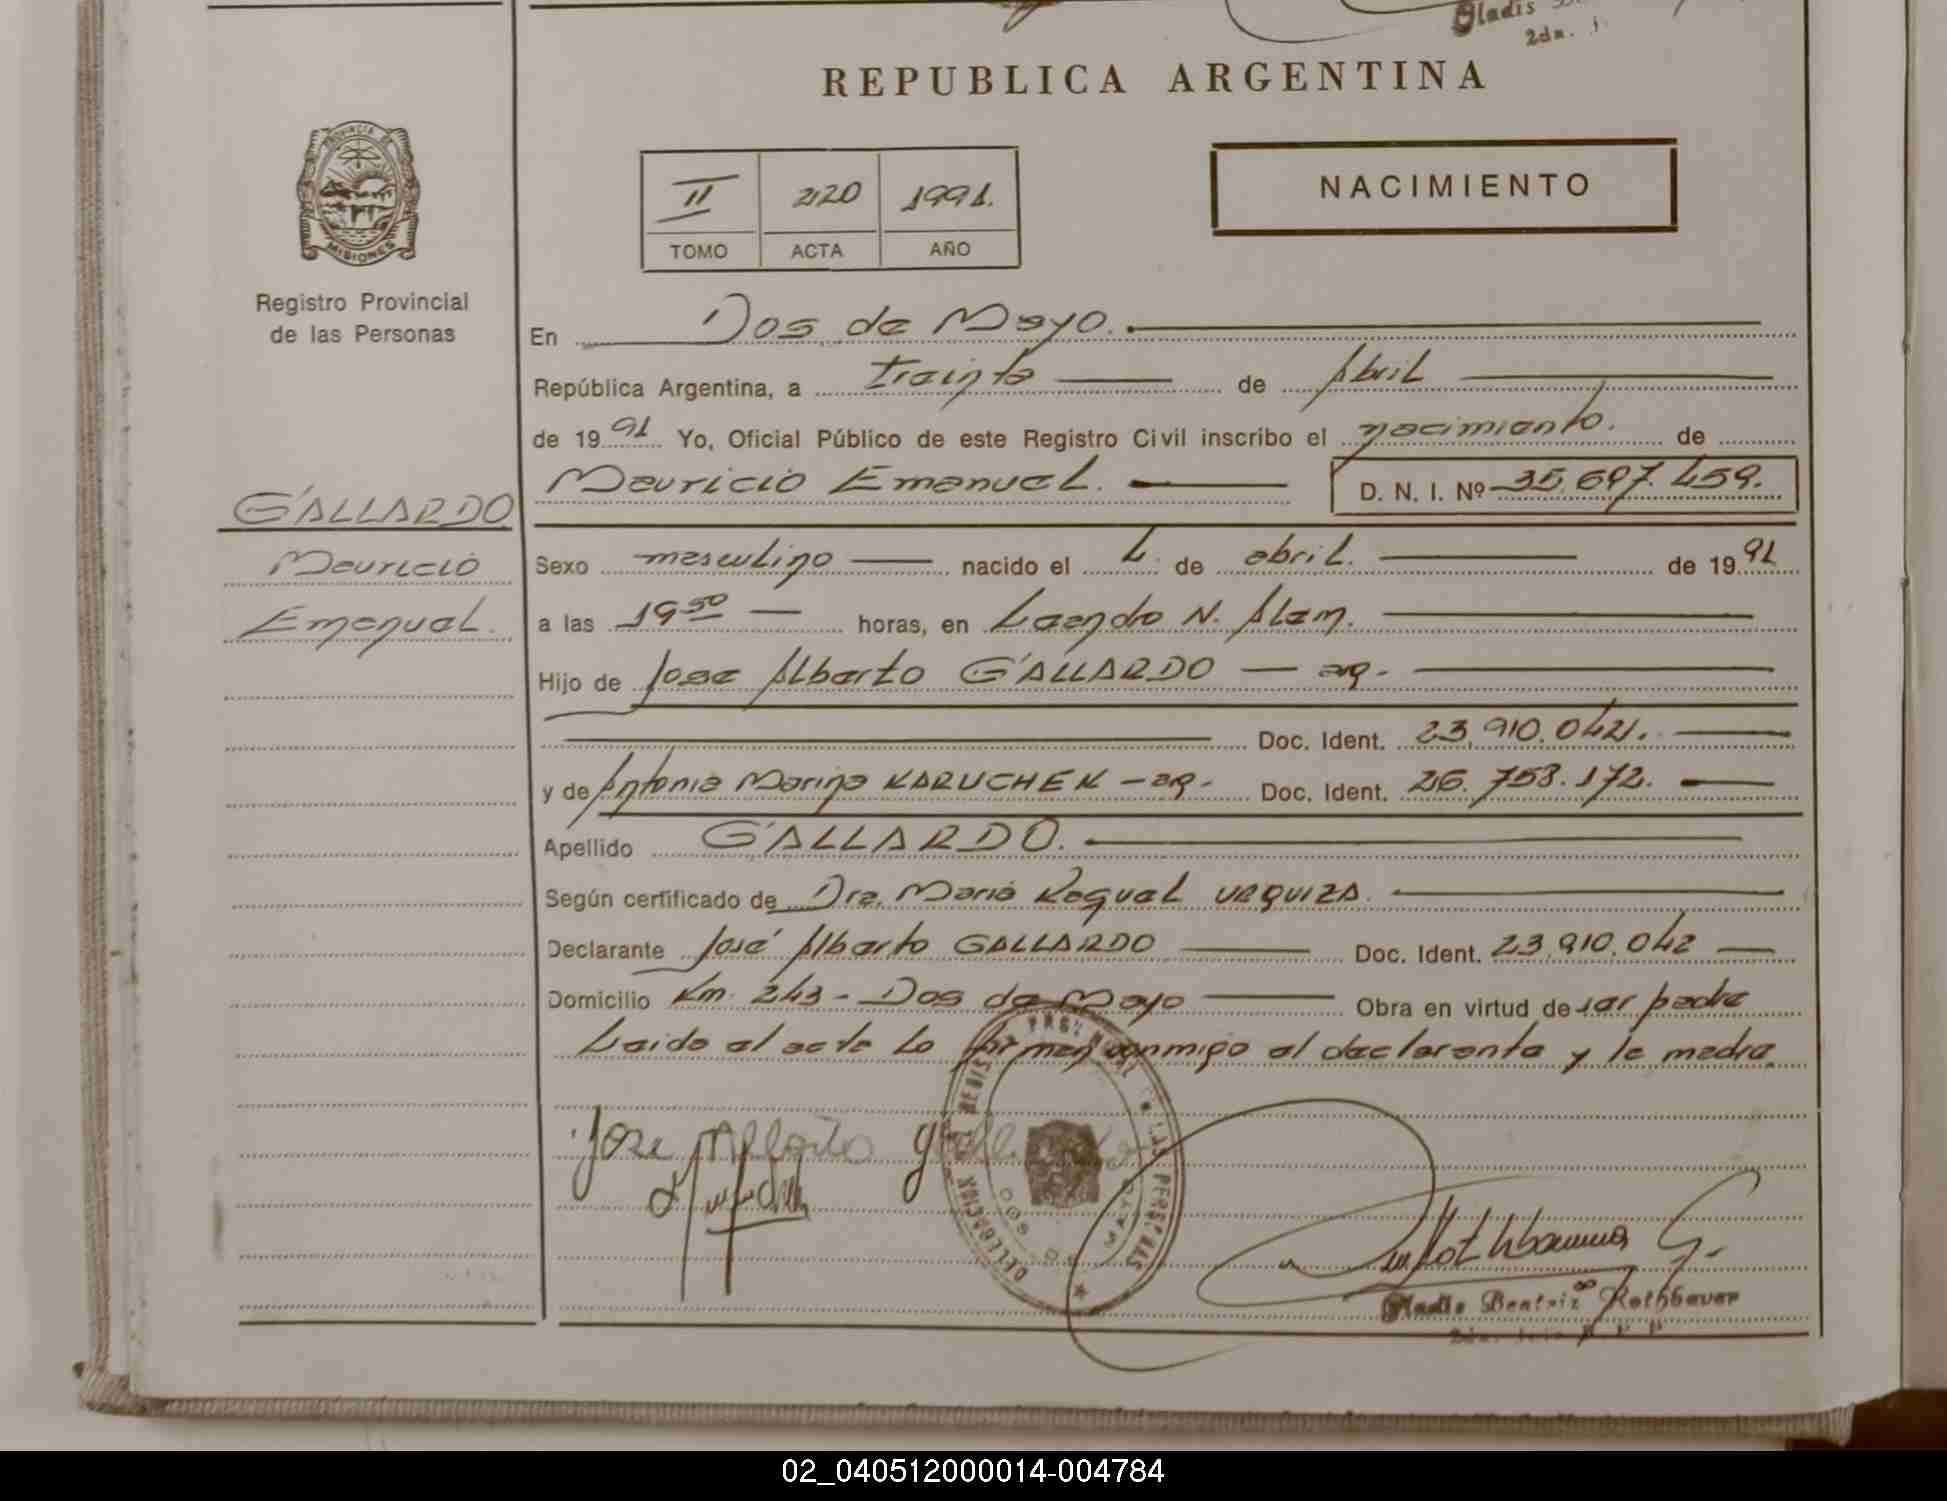 Gladis
2da. J.
REPUBLICA ARGENTINA
PROVINCIA DE
MISIONES
Registro Provincial
de las Personas
II 220 1991.
TOMO ACTA AÑO
NACIMIENTO
En Dos de Mayo.
República Argentina, a treinta de Abril
de 1991 Yo, Oficial Público de este Registro Civil inscribo el nacimiento. de
Mauricio Emanuel. D. N. I. Nº 35.697.459.
GALLARDO
Mauricio
Emanuel.
Sexo masculino nacido el 4 de abril. de 1991
a las 19 30 horas, en Leandro N. Alem.
Hijo de Jose Alberto GALLARDO — arg.
Doc. Ident. 23.910.042.
y de Antonia Marina KARUCHEK — arg. Doc. Ident. 26.758.172.
Apellido GALLARDO.
Según certificado de Dra. Maria Raquel URQUIZA.
Declarante José Alberto GALLARDO Doc. Ident. 23.910.042
Domicilio Km. 243 - Dos de Mayo Obra en virtud de ser padre
Leida el acta lo firman conmigo el declarante y la madre
Jose Alberto Gallardo
DELEGACION DOS DE MAYO
Rothbauer G.
Gladis Beatriz Rothbauer
02_040512000014-004784